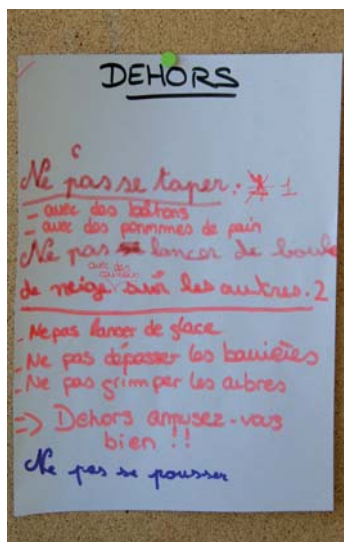 DEHORS
Ne pas se taper. 1
- avec des bâtons
- avec des pommmes de pain
Ne pas lancer de boule
avec des cailloux
de neige sur les autres. 2
- Ne pas lancer de glace
- Ne pas dépasser les barrières
- Ne pas grimper les arbres
=> Dehors amusez-vous
bien !!
Ne pas se pousser